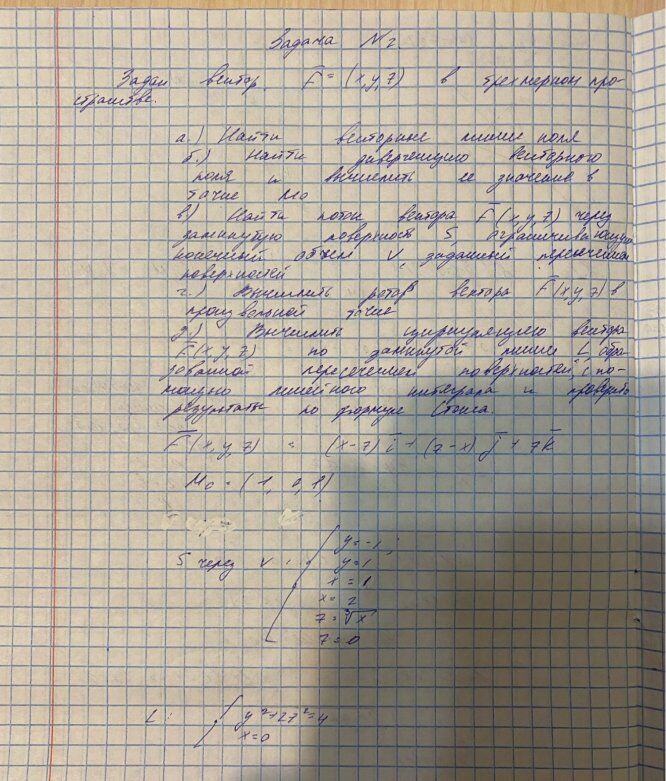 Задача №2.
Задан вектор F = (x, y, z) в трехмерном про-
странстве.
а.) Найти векторные линии поля
б.) Найти дивергенцию векторного
поля и вычислить ее значение в
точке M0
в) Найти поток вектора F(x, y, z) через
замкнутую поверхность S, ограничивающую
конечный объем V, заданный пересечением
поверхностей
г.) Вычислить ротор вектора F(x y, z) в
произвольной точке
д.) Вычислить циркуляцию вектора
F(x, y, z) по замкнутой линии L, обра-
зованной пересечением поверхностей, с по-
мощью линейного интеграла и проверить
результаты по формуле Стокса.
F(x, y, z) = (x-z) i + (z-x) j + z k
M0 = (1, 0, 1)
S через V :
y = -1 ;
y = 1
x = 1
x = 2
z = √x
z = 0
L :
y² + 2z² = 4
x = 0